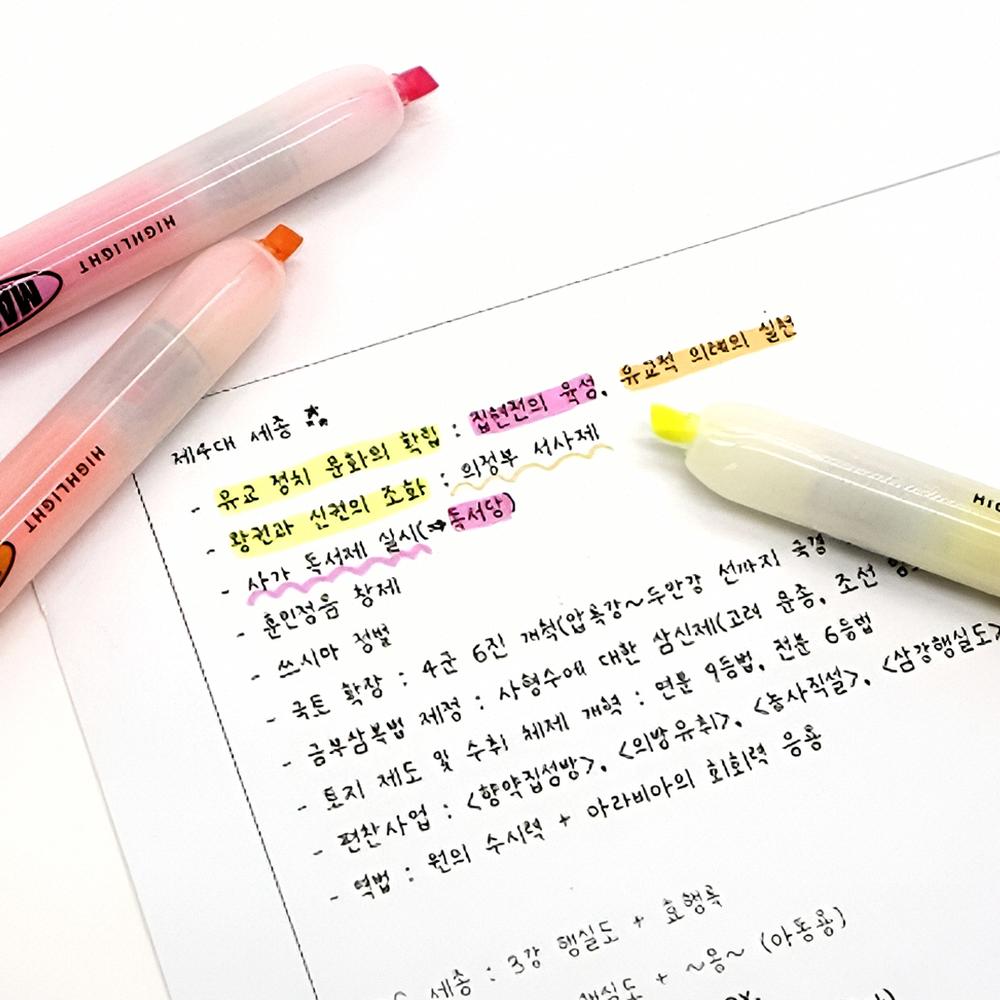 HIGHLIGHT
MA
HIGHLIGHT
제4대 세종
- 유교 정치 문화의 확립 : 집현전의 육성, 유교적 의례의 실천
- 왕권과 신권의 조화 : 의정부 서사제
- 사가 독서제 실시(⇒독서당)
- 훈민정음 창제
- 쓰시마 정벌
- 국토 확장 : 4군 6진 개척(압록강~두만강 선까지 국경
- 금부삼복법 제정 : 사형수에 대한 삼심제(고려 문종, 조선
- 토지 제도 및 수취 체제 개혁 : 연분 9등법, 전분 6등법
- 편찬사업 : <향약집성방>, <의방유취>, <농사직설>, <삼강행실도>
- 역법 : 원의 수시력 + 아라비아의 회회력 응용
세종 : 3강 행실도 + 효행록
행실도 + ~응~ (아동용)